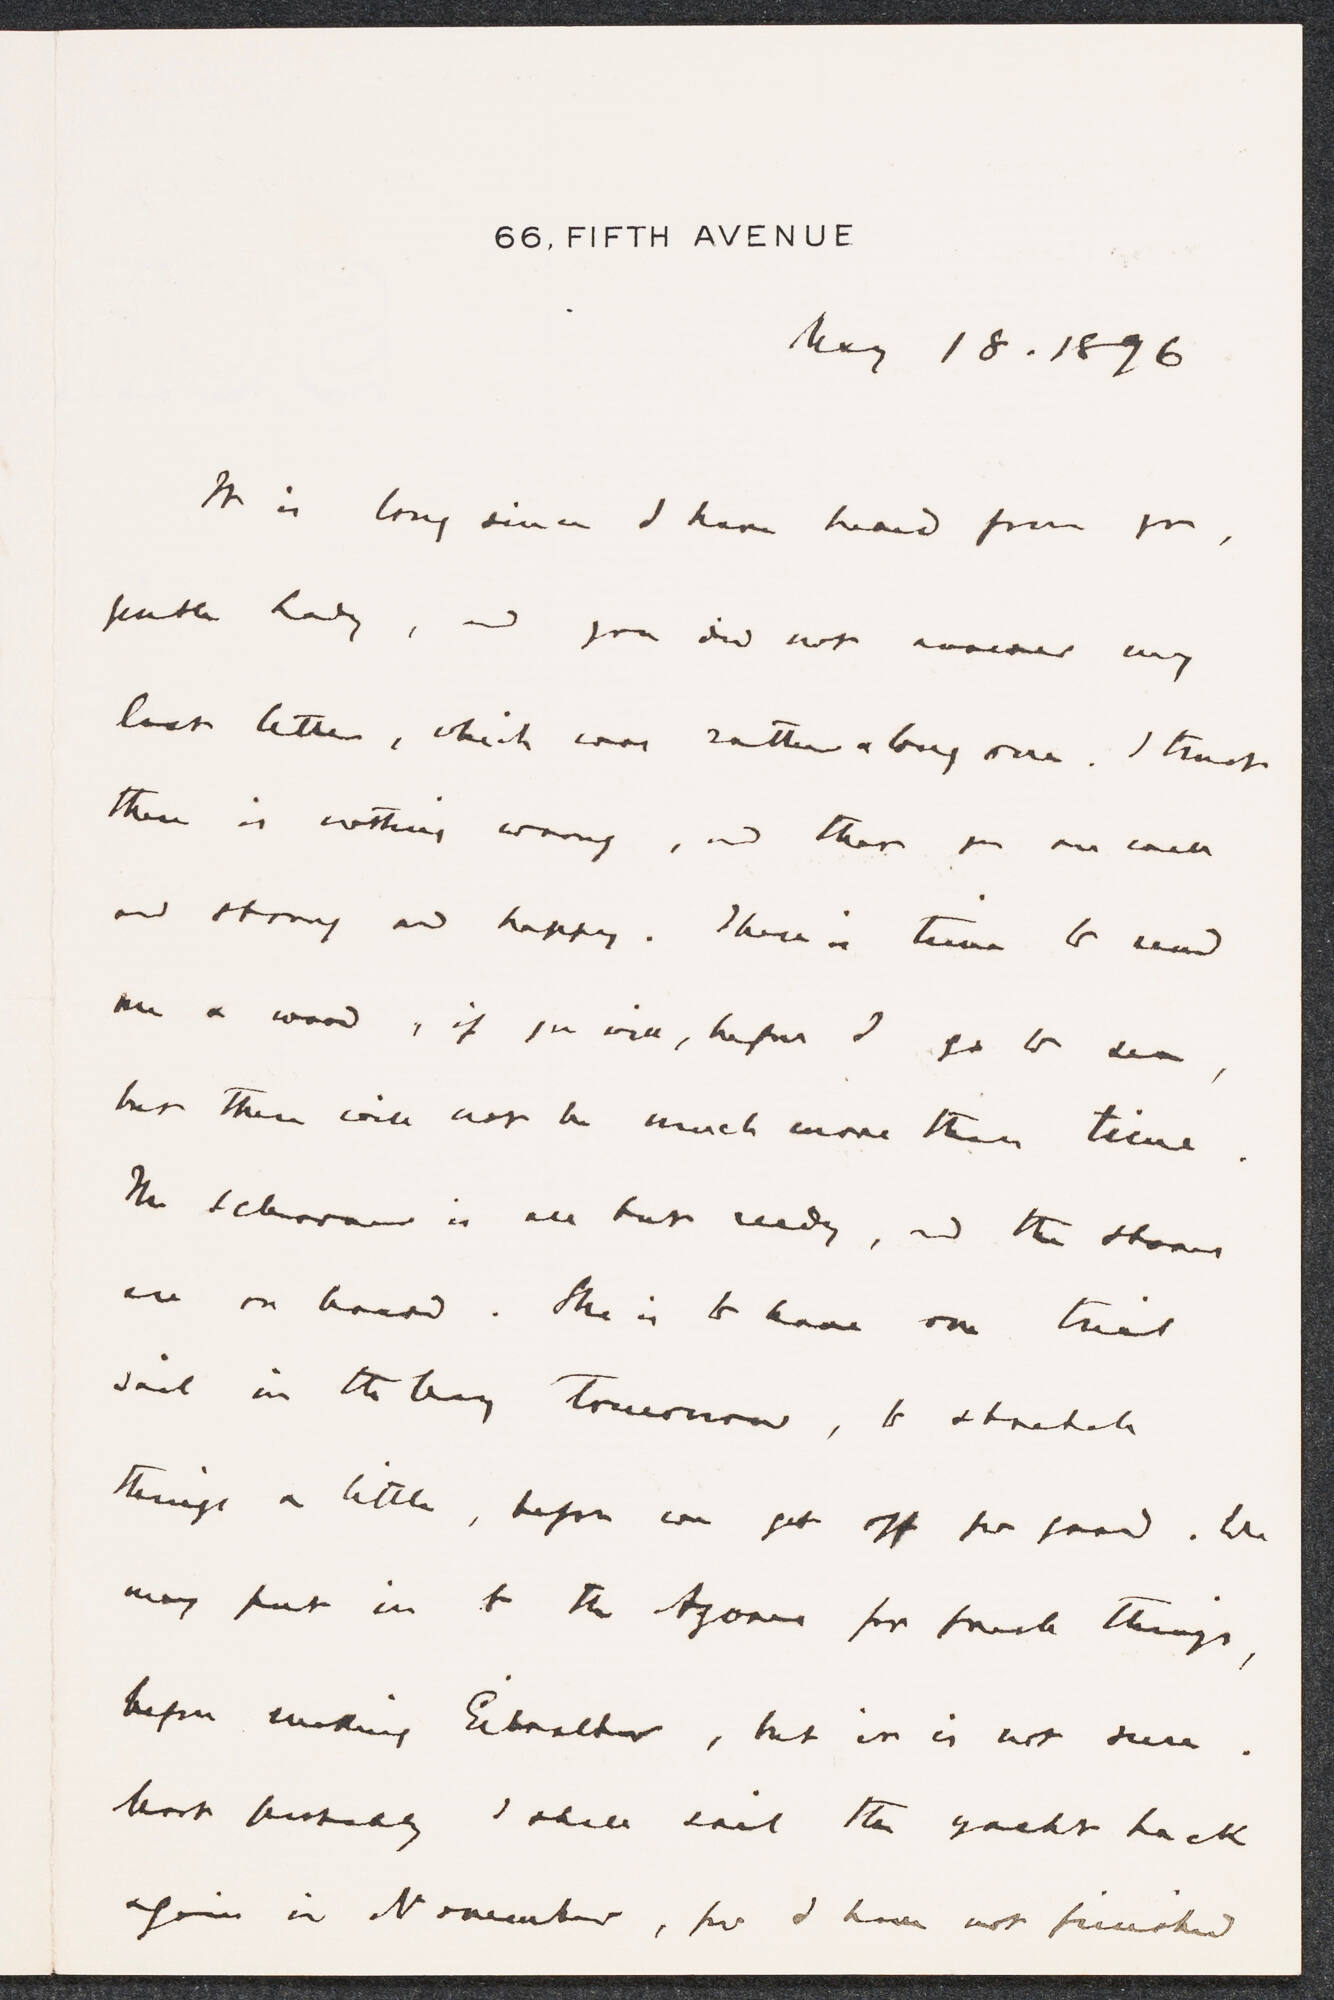 66, FIFTH AVENUE
May 18. 1896
It is long since I have heard from you,
gentle Lady, and you did not answer my
last letter, which was rather a long one. I trust
there is nothing wrong, and that you are well
and strong and happy. There is time to send
me a word, if you will, before I go to sea,
but there will not be much more than time.
The schooner is all but ready, and the stores
are on board. She is to have one trial
sail in the bay tomorrow, to stretch
things a little, before we get off for good. We
may put in to the Azores for fresh things,
before making Gibraltar, but it is not sure.
Most probably I shall sail the yacht back
again in November, for I have not finished